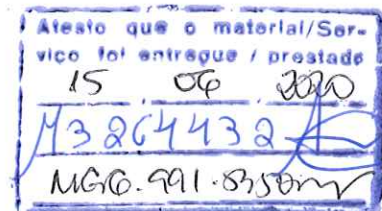 Atesto que o material/Ser-
viço foi entregue / prestado
15 06 2020
M3264432